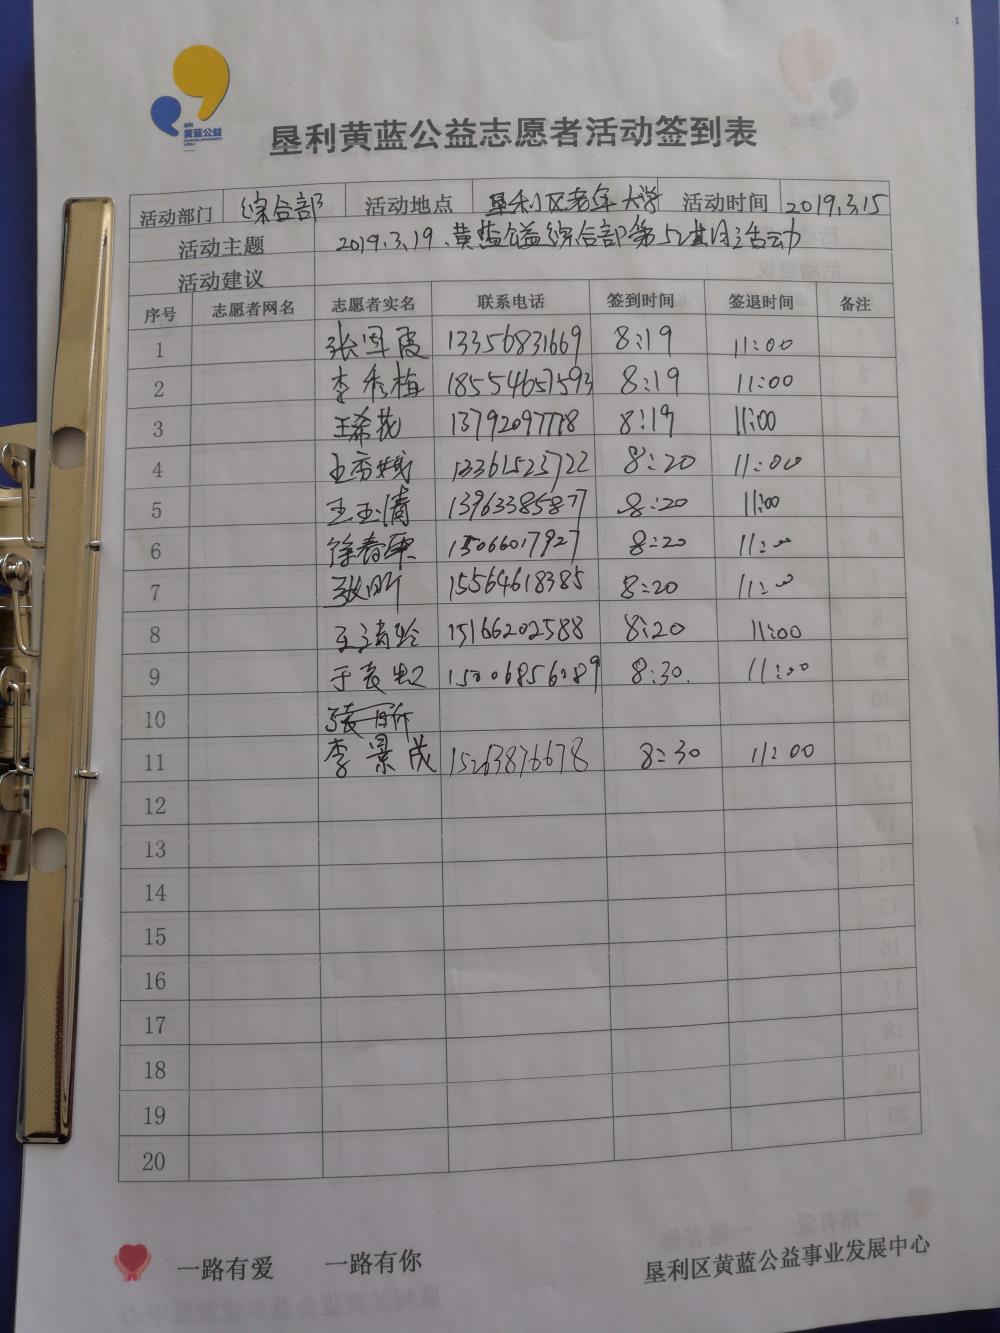 黄蓝公益
垦利黄蓝公益志愿者活动签到表
活动部门 综合部 活动地点 垦利区老年大学 活动时间 2019.3.15
活动主题 2019.3.19.黄蓝公益综合部第 活动
活动建议
序号 志愿者网名 志愿者实名 联系电话 签到时间 签退时间 备注
1 张 霞 13356831669 8:19 11:00
2 李秀梅 18554657593 8:19 11:00
3 王希花 13792097778 8:19 11:00
4 王秀娥 13361523722 8:20 11:00
5 王玉清 13963385877 8:20 11:00
6 徐春 15066017927 8:20 11:00
7 张昕 15564618385 8:20 11:00
8 王 玲 15166202588 8:20 11:00
9 于 15006856089 8:30. 11:00
10 张昕
11 李景茂 15263876678 8:30 11:00
12
13
14
15
16
17
18
19
20
一路有爱 一路有你
垦利区黄蓝公益事业发展中心